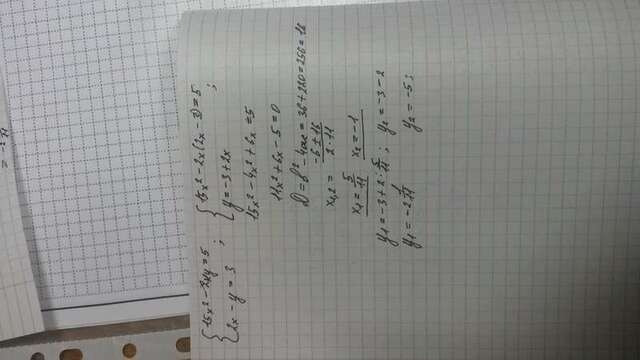 = -2 1/11
{ 15x² - 2xy = 5 ; { 15x² - 2x(2x - 3) = 5 ;
2x - y = 3 y = -3 + 2x
15x² - 4x² + 6x = 5
11x² + 6x - 5 = 0
D = b² - 4ac = 36 + 220 = 256 = 16
x₁,₂ = (-6 ± 16)/(2·11)
x₁ = 5/11 x₂ = -1
y₁ = -3 + 2·5/11 ; y₂ = -3 - 2
y₁ = -2 1/11 y₂ = -5 ;